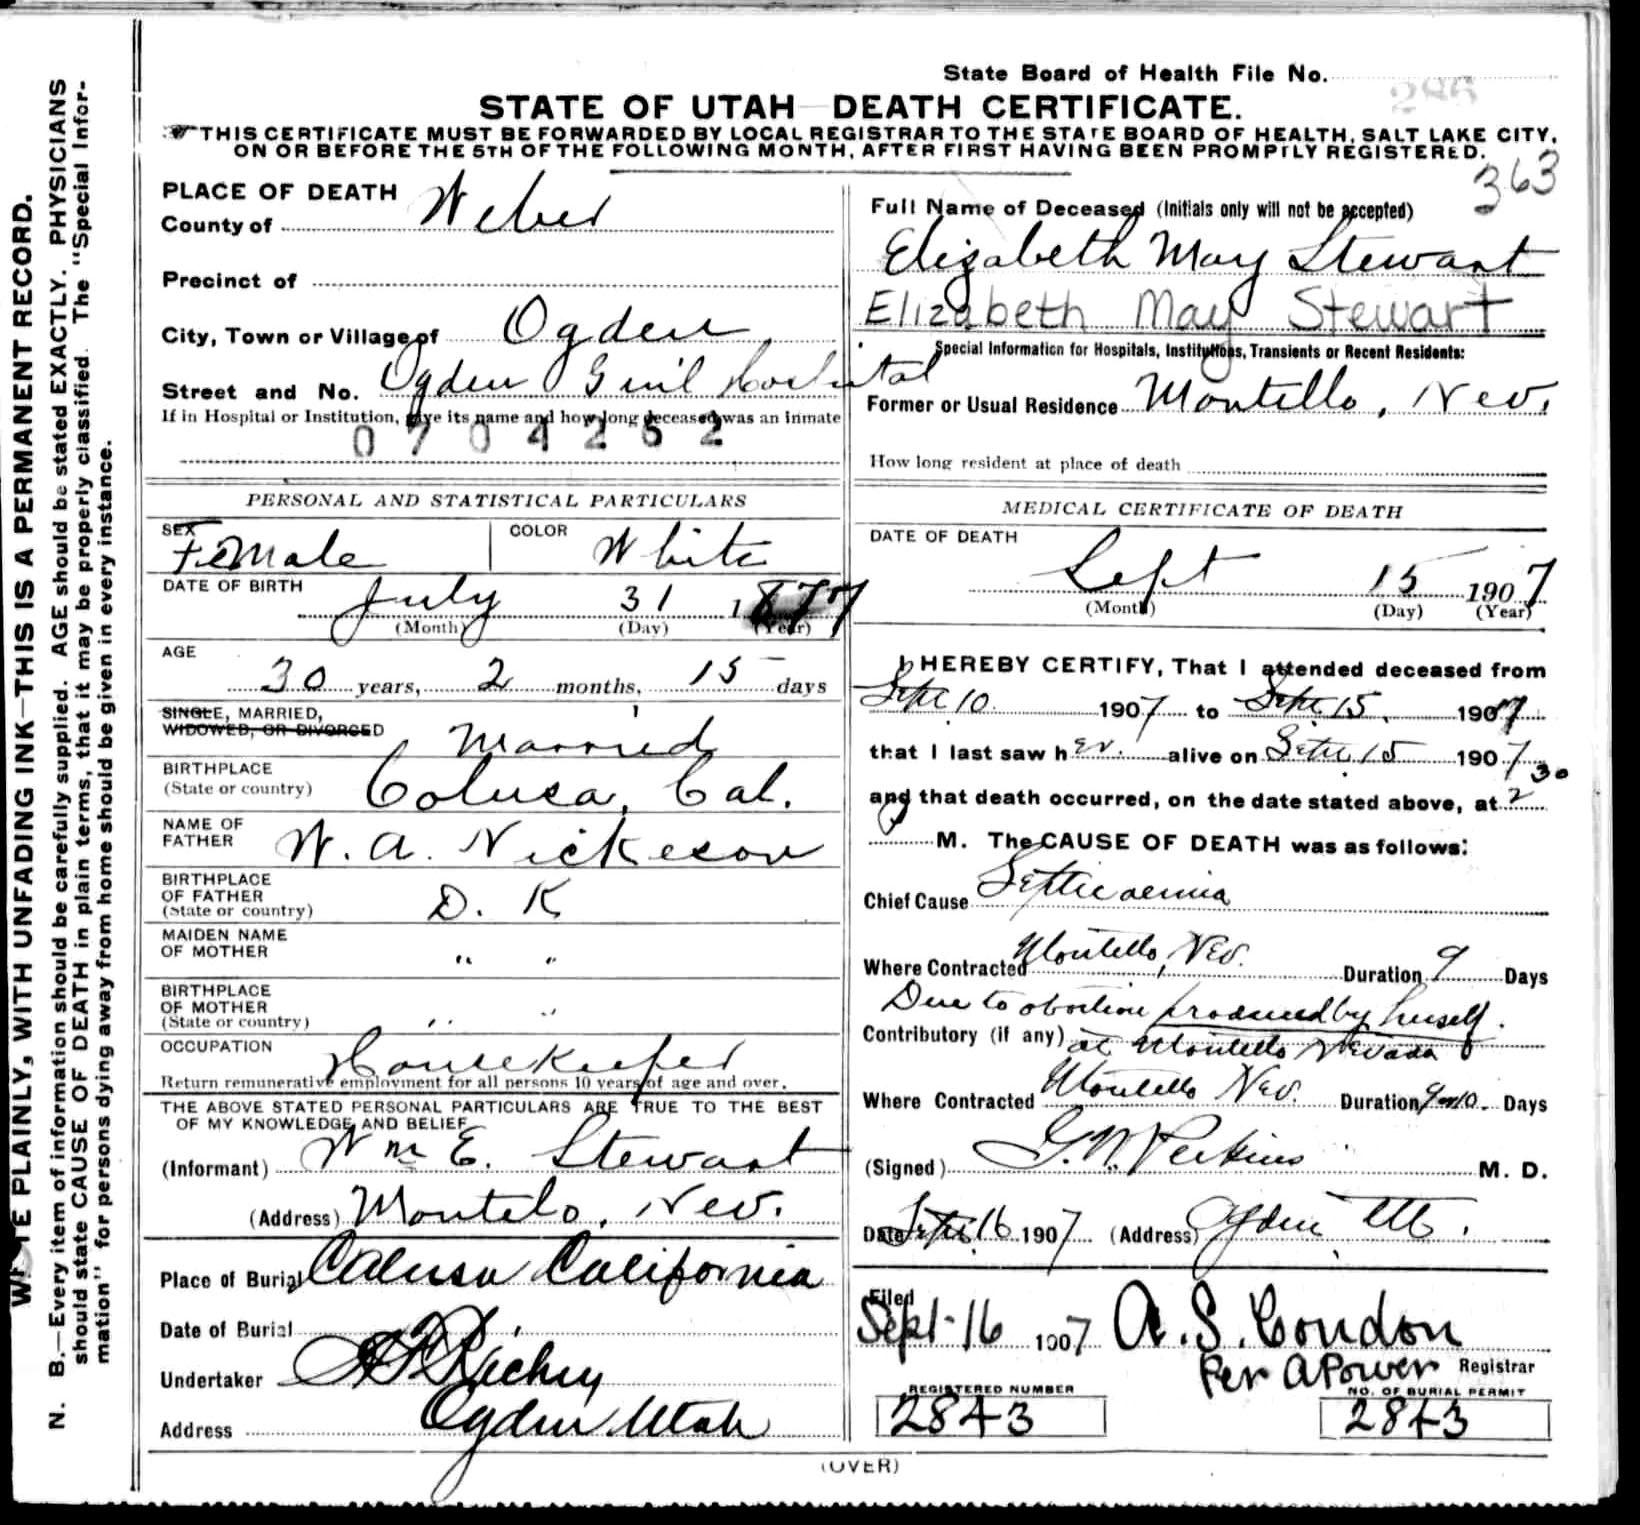 State Board of Health File No.
STATE OF UTAH DEATH CERTIFICATE.
THIS CERTIFICATE MUST BE FORWARDED BY LOCAL REGISTRAR TO THE STATE BOARD OF HEALTH, SALT LAKE CITY,
ON OR BEFORE THE 5TH OF THE FOLLOWING MONTH, AFTER FIRST HAVING BEEN PROMPTLY REGISTERED.
363
WRITE PLAINLY, WITH UNFADING INK—THIS IS A PERMANENT RECORD.
N. B.—Every item of information should be carefully supplied. AGE should be stated EXACTLY. PHYSICIANS
should state CAUSE OF DEATH in plain terms, that it may be properly classified. The "Special Infor-
mation" for persons dying away from home should be given in every instance.
PLACE OF DEATH
County of Weber
Precinct of
City, Town or Village of Ogden
Street and No. Ogden Genl Hospital
If in Hospital or Institution, give its name and how long deceased was an inmate
0704262
PERSONAL AND STATISTICAL PARTICULARS
SEX Female COLOR White
DATE OF BIRTH July 31 1877
(Month) (Day) (Year)
AGE
30 years, 2 months, 15 days
SINGLE, MARRIED,
WIDOWED, OR DIVORCED Married
BIRTHPLACE
(State or country) Colusa, Cal.
NAME OF
FATHER W. A. Nickeson
BIRTHPLACE
OF FATHER
(State or country) D. K
MAIDEN NAME
OF MOTHER " "
BIRTHPLACE
OF MOTHER
(State or country) " "
OCCUPATION Housekeeper
Return remunerative employment for all persons 10 years of age and over.
THE ABOVE STATED PERSONAL PARTICULARS ARE TRUE TO THE BEST
OF MY KNOWLEDGE AND BELIEF
(Informant) Wm E. Stewart
(Address) Montelo, Nev.
Place of Burial Calusa California
Date of Burial
Undertaker Richey
Address Ogden Utah
Full Name of Deceased (Initials only will not be accepted)
Elizabeth May Stewart
Elizabeth May Stewart
Special Information for Hospitals, Institutions, Transients or Recent Residents:
Former or Usual Residence Montello, Nev.
How long resident at place of death
MEDICAL CERTIFICATE OF DEATH
DATE OF DEATH
Sept 15 1907
(Month) (Day) (Year)
I HEREBY CERTIFY, That I attended deceased from
Sept 10 1907 to Sept 15, 1907
that I last saw her alive on Sept 15 1907
and that death occurred, on the date stated above, at 2 30
M. The CAUSE OF DEATH was as follows:
Chief Cause Septicaemia
Where Contracted Montello, Nev. Duration 9 Days
Due to abortion produced by herself.
Contributory (if any) at Montello Nevada
Where Contracted Montello Nev. Duration 9 or 10 Days
(Signed) G. N. Perkins M. D.
Date Sept 16 1907 (Address) Ogden Ut.
Filed
Sept-16 1907 A. S. Condon
Per A Power Registrar
REGISTERED NUMBER
2843
NO. OF BURIAL PERMIT
2843
(OVER)